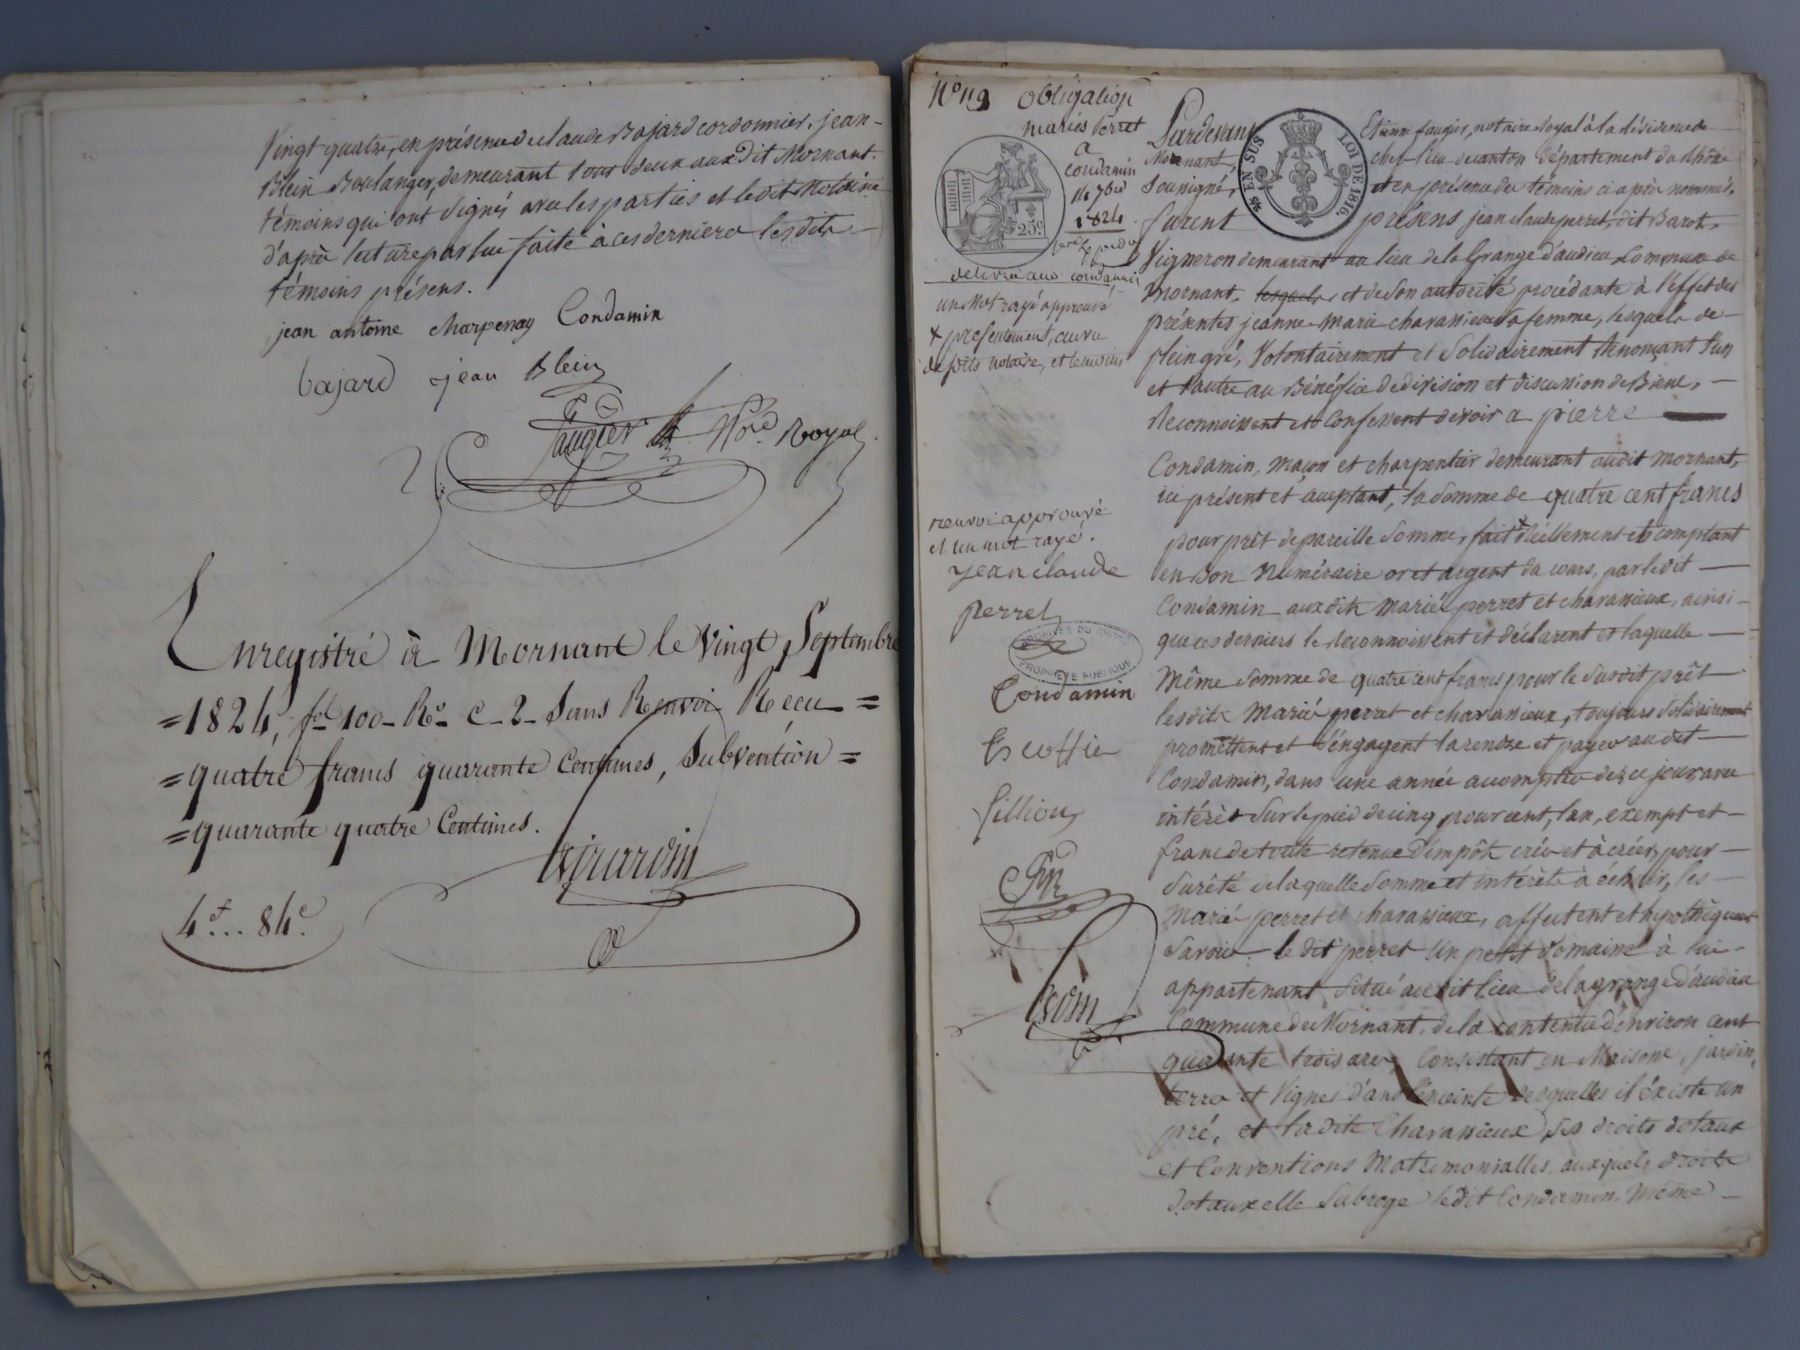 Vingt quatre, en présence de claude Bajard cordonnier, jean-
Blein Boulanger, demeurant tous deux aux Dit Mornant.
témoins qui ont signés avec les parties et ledit Notaire
d'après lecture par lui faite à ces derniers lesdits
témoins présens.
jean antoine charpenay Condamin
bajard jean Blein
faugier Nre Royal
Enregistré à Mornant le Vingt Septembre
=1824, fol 100 Ro C-2 Sans Renvoi Reçu =
=quatre francs quarante Centimes, Subvention =
=quarante quatre Centimes.
Girardin
4f... 84c
No 119 obligation
mariés Perret
a
condamin
14 7bre
1824
25c
delivré aud condamin
un mot rayé approuvé
+ présentement, au vu
desdits notaire, et témoins
renvoi approuvé
et un mot rayé.
jean claude
perret
ARCHIVES DU RHÔNE
PROPRIÉTÉ PUBLIQUE
Condamin
Escoffie
fillion
EN SUS LOI DE 1816
Pardevant Etienne faugier, notaire Royal à la résidence de
Mornant, chef-lieu de canton Département du Rhône
Soussigné, et en présence des témoins ci après nommés,
furent présens jean claude perret, dit Barot,
Vigneron demeurant au lieu de la Grange d'audieu Commune de
Mornant, lesquels et de son autorité procédante à l'effet des
présentes jeanne marie charassieux sa femme, lesquels de
plein gré, Volontairement et Solidairement Renonçant l'un
et l'autre au Bénéfice de division et discussion de Biens,
Reconnoissent et Confessent devoir a pierre
Condamin, maçon et charpentier demeurant audit mornant,
ici présent et acceptant, la Somme de quatre cent francs
pour prêt de pareille Somme, fait + Réellement et comptant
en Bon Numéraire or et argent du cours, par ledit
Condamin aux dits mariés perret et charassieux, ainsi
que ces derniers le reconnoissent et déclarent et laquelle
Même Somme de quatre cent francs pour le Susdit prêt
lesdits Mariés perret et charassieux, toujours Solidairement
promettent et s'engagent la rendre et payer audit
Condamin, dans une année a compter de ce jour, avec
intérêt Sur le pied de cinq pour cent, l'an, exempt et
franc de toute retenue d'impôts créés et à créer, pour
Sureté de laquelle Somme et intérêts à échoir, les
Mariés perret et charassieux, affectent et hypothèquent
Savoir le dit perret Un petit domaine à lui
appartenant Situé audit lieu de la grange d'audieu
Commune de Mornant, de la contenue d'environ cent
quarante trois ares, Consistant en Maisons, jardin,
terres et Vignes dans l'enceinte desquelles il existe un
pré, et ladite Charassieux Ses droits dotaux
et Conventions Matrimonialles, auxquels droits
dotaux elle Subroge ledit Condamin, Même